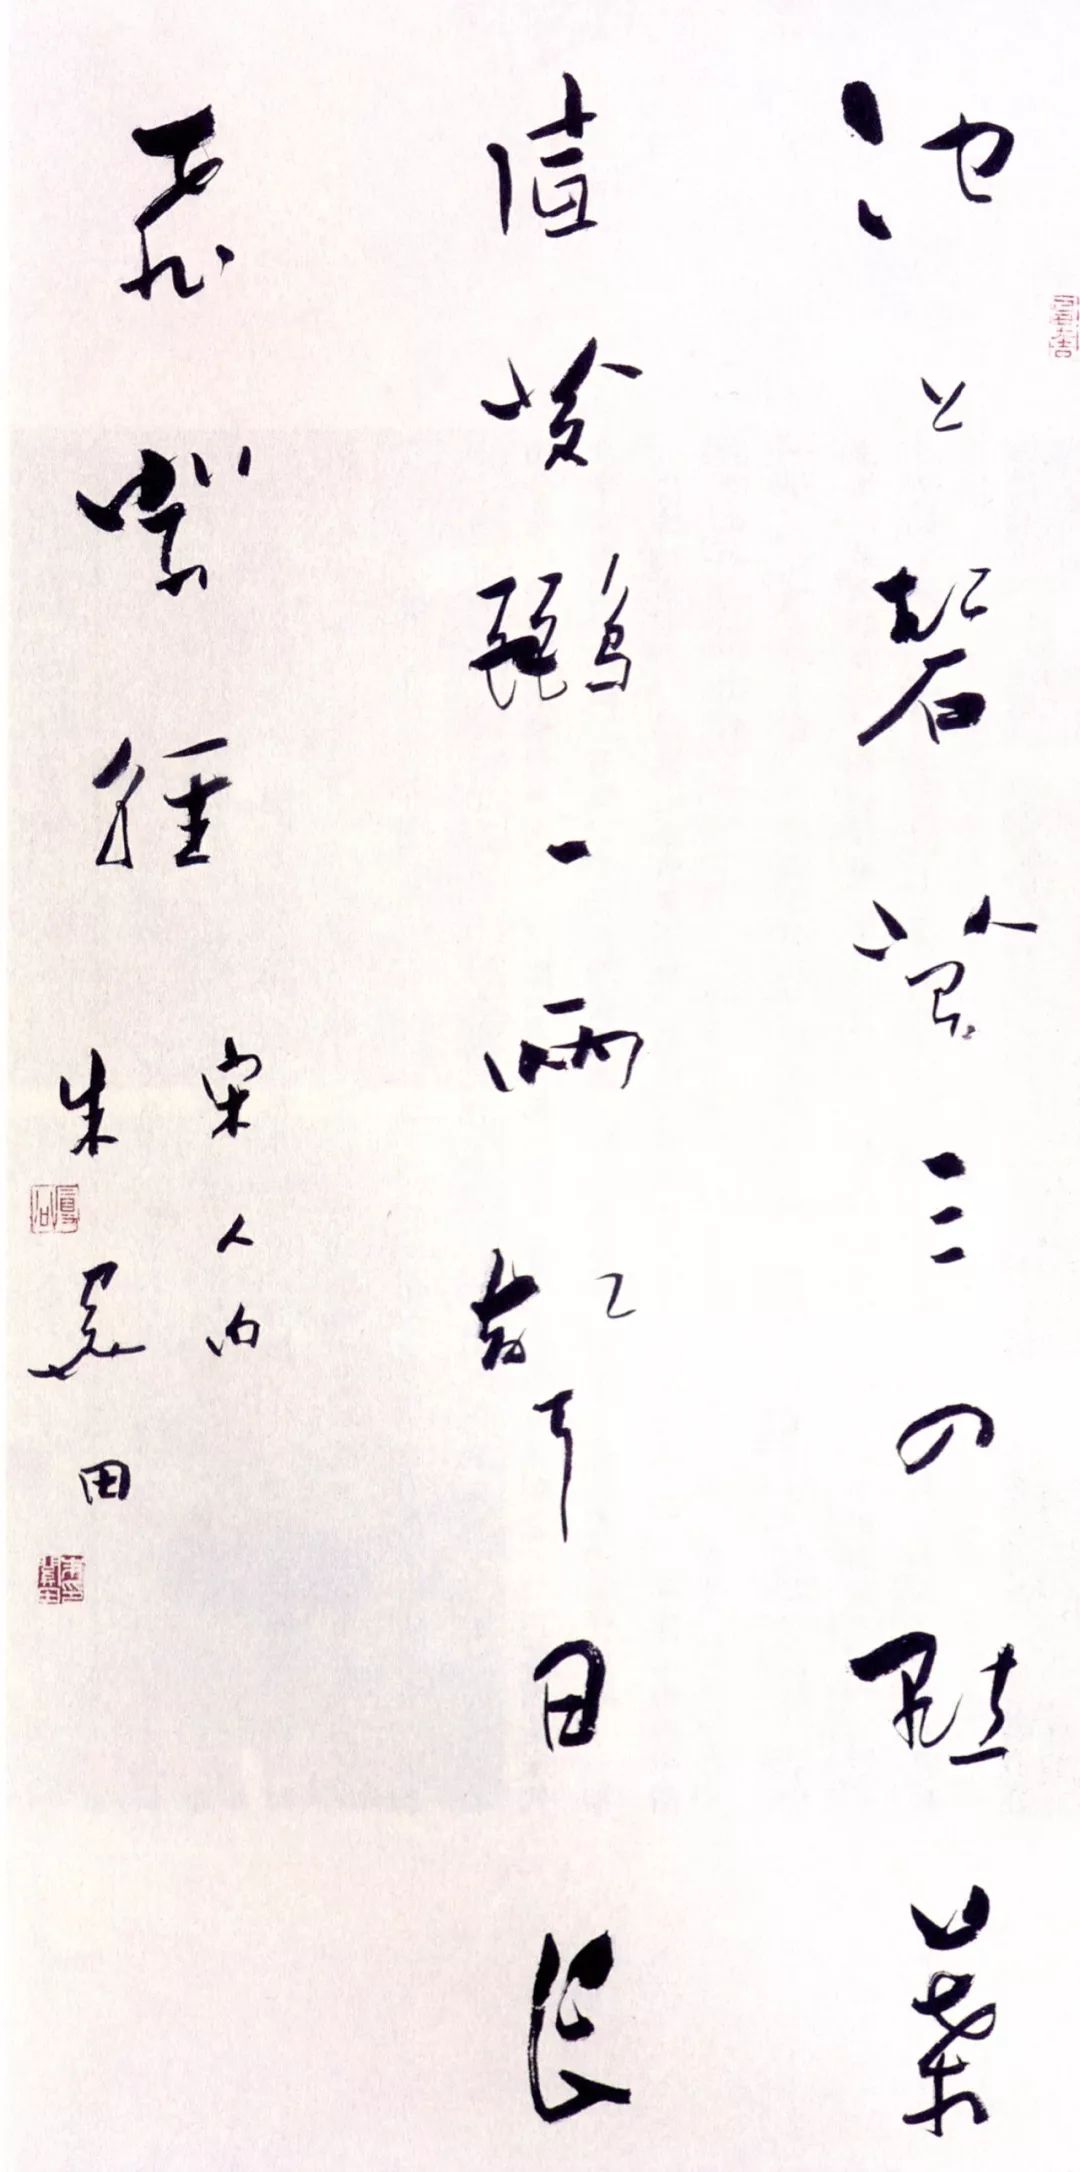 池上碧苔三四點葉
底黃鸝一兩聲日長
飛絮輕
宋人句
朱關田